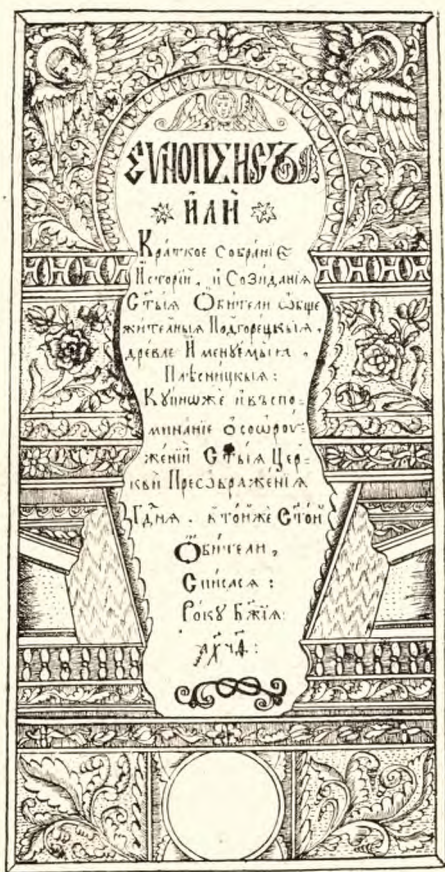 СѴНОПСИСЪ
ИЛИ
Краткое Собраніе
Исторій, и Созиданія
Стыя Обители Обще
жителныя Подгорецкыя,
древле Именуемыя,
Плѣсницкыя:
Купноже и въспо-
минаніе о соору-
женіи Стыя Цер-
кви Преображенія
Гдня. в тойже Стой
Обители,
Списася:
Року Бжія: